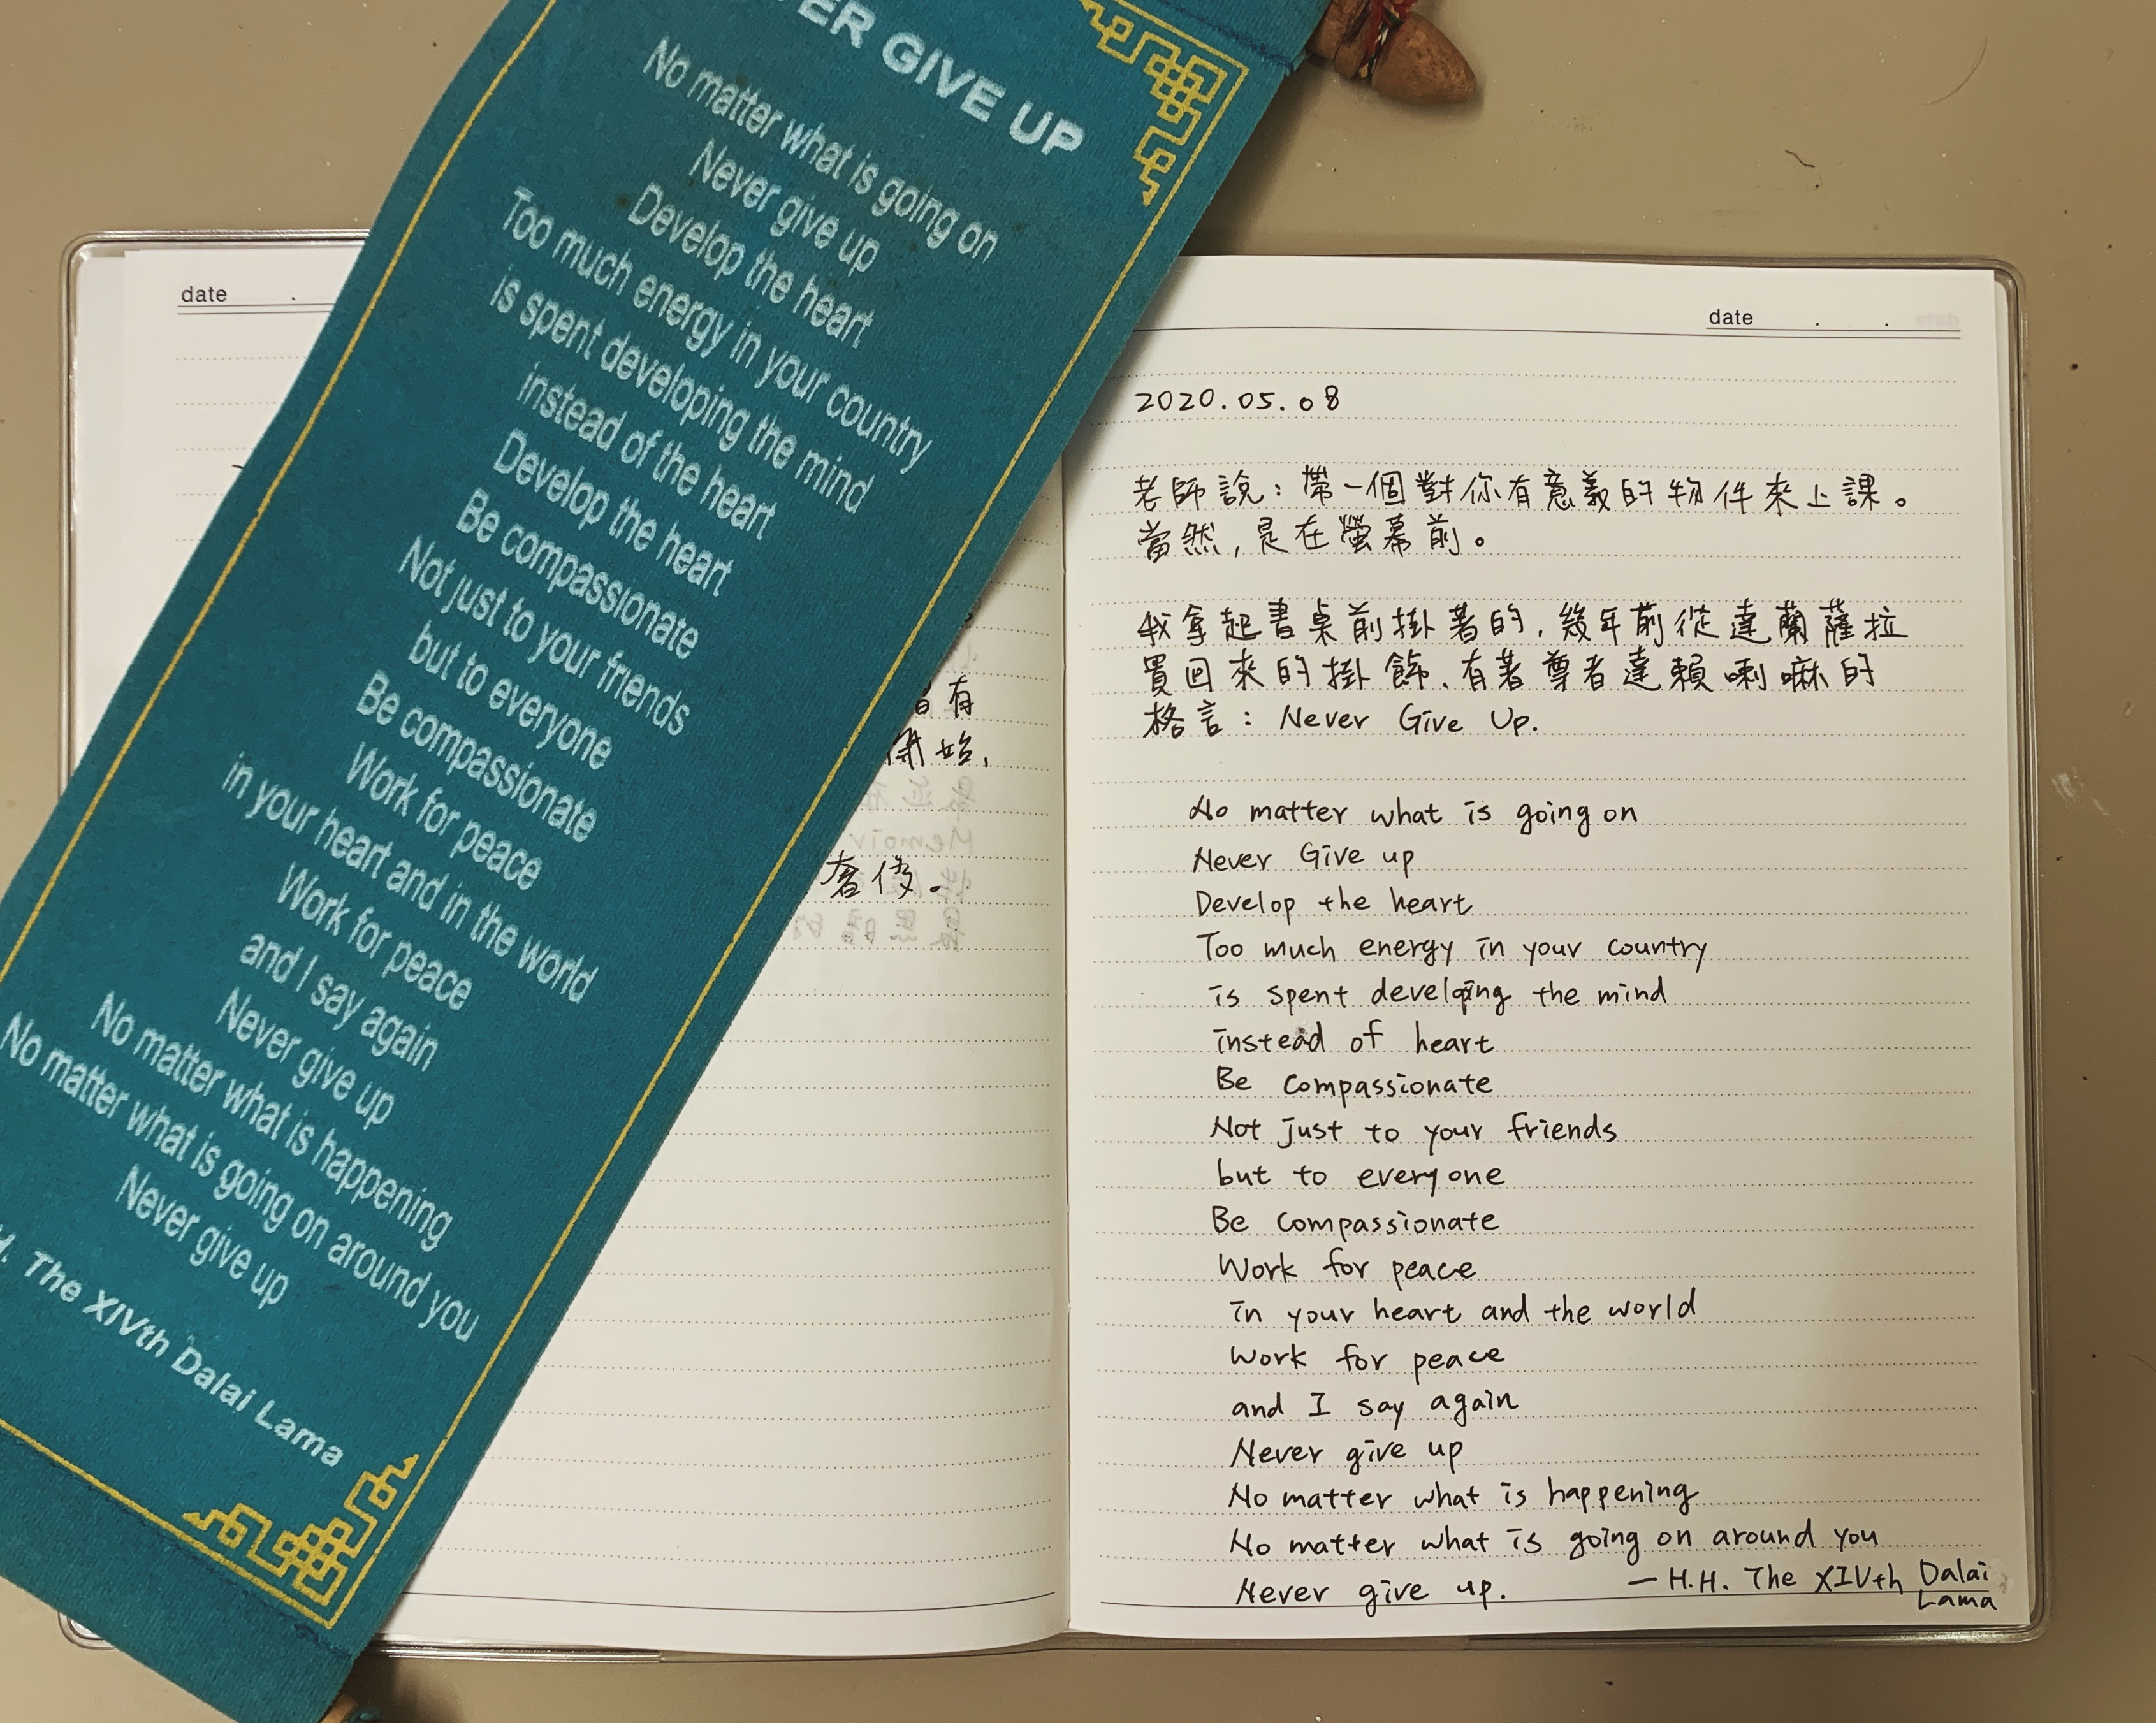 ER GIVE UP
No matter what is going on
Never give up
Develop the heart
Too much energy in your country
is spent developing the mind
instead of the heart
Develop the heart
Be compassionate
Not just to your friends
but to everyone
Be compassionate
Work for peace
in your heart and in the world
Work for peace
and I say again
Never give up
No matter what is happening
No matter what is going on around you
Never give up
The XIVth Dalai Lama
date . 
有
開始,
奢侈。
date . .
2020.05.08
老師說:帶一個對你有意義的物件來上課。
當然,是在螢幕前。
我拿起書桌前掛著的,幾年前從達蘭薩拉
買回來的掛飾、有著尊者達賴喇嘛的
格言: Never Give Up.
No matter what is going on
Never Give up
Develop the heart
Too much energy in your country
is spent developing the mind
instead of heart
Be compassionate
Not just to your friends
but to everyone
Be compassionate
Work for peace
in your heart and the world
Work for peace
and I say again
Never give up
No matter what is happening
No matter what is going on around you
Never give up. — H.H. The XIVth Dalai
Lama